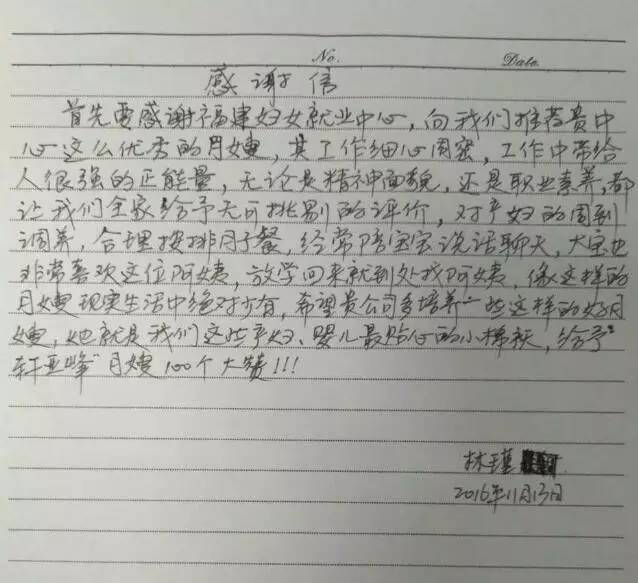 No.
Date.
感谢信
首先要感谢福建妇女就业中心，向我们推荐贵中
心这么优秀的月嫂，其工作细心周密，工作中带给
人很强的正能量，无论是精神面貌，还是职业素养，都
让我们全家给予无可挑剔的评价，对产妇的周到
调养，合理按排月子餐，经常陪宝宝说话聊天，大宝也
非常喜欢这位阿姨，放学回来就到处找阿姨，像这样的
月嫂现实生活中绝对少有，希望贵公司多培养一些这样的好月
嫂，她就是我们这些产妇、婴儿最贴心的小棉袄，给予"
轩亚峰"月嫂100个大赞!!!
林瑾
2016年11月13日